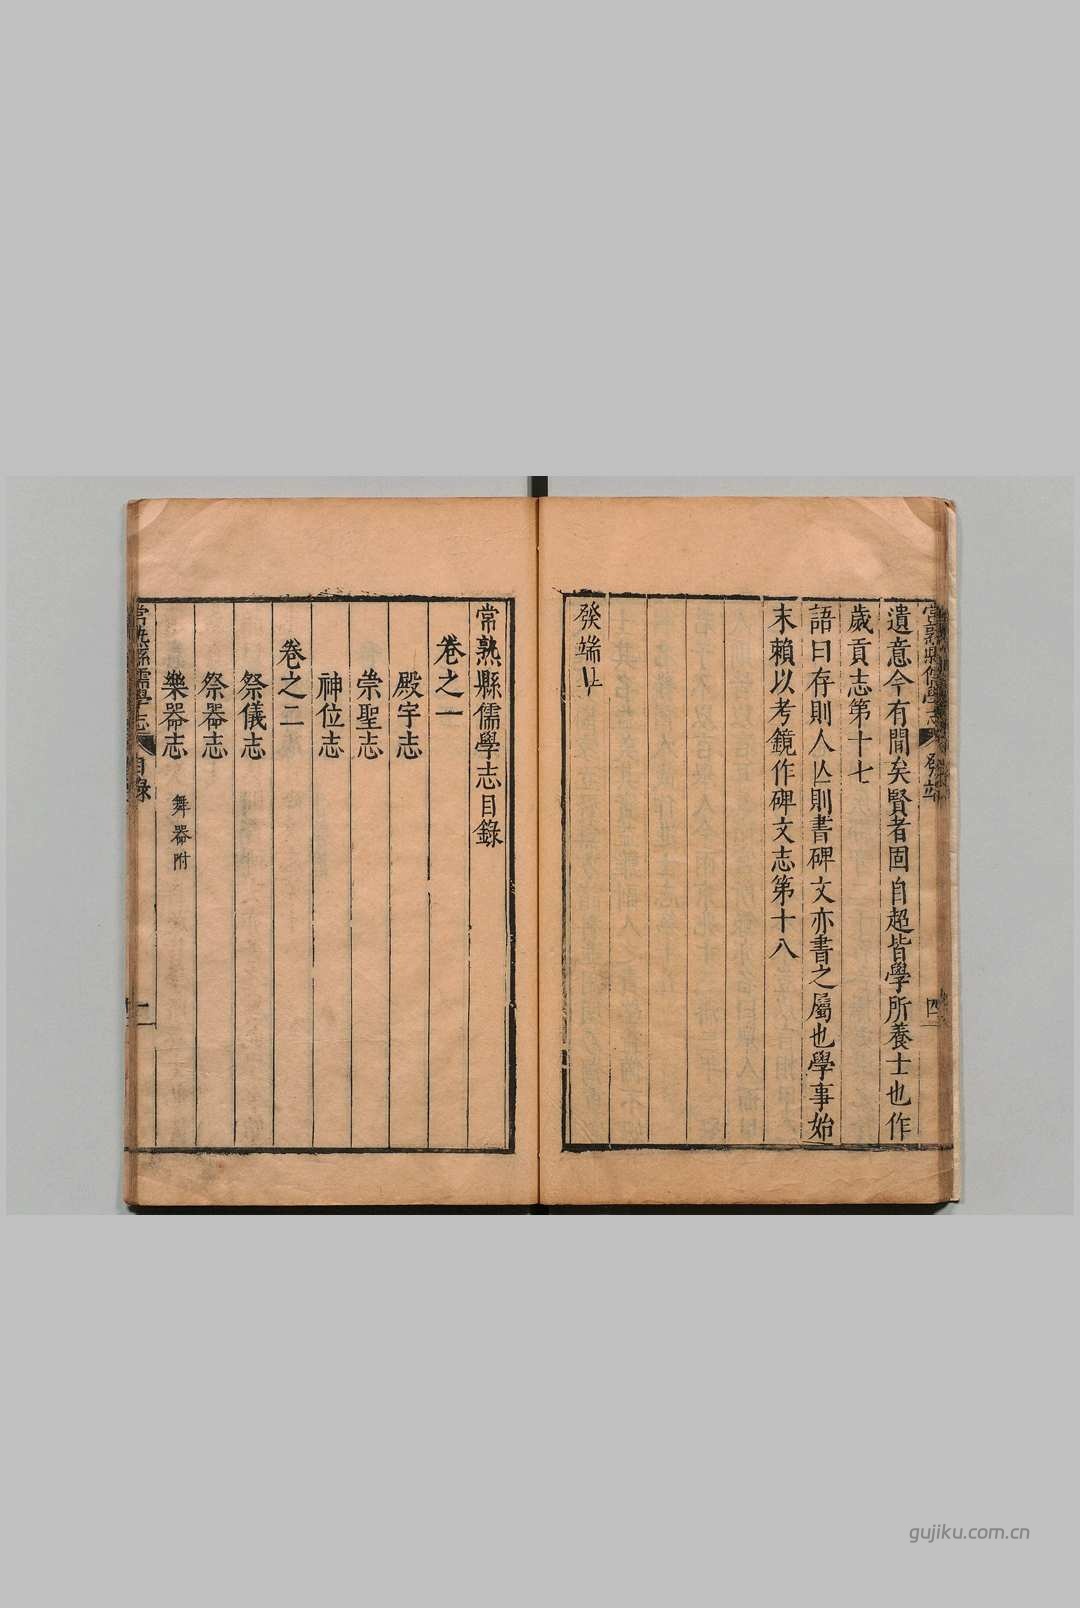 遺意今有聞矣賢者固自超皆學所養士也作
歲貢志第十七
語曰存則人亡則書碑文亦書之屬也學事始
末賴以考鏡作碑文志第十八
發端止
常熟縣儒學志目錄
卷之一
殿宇志
崇聖志
神位志
卷之二
祭儀志
祭器志
樂器志 舞器附
常熟縣儒學志
目錄
gujiku.com.cn